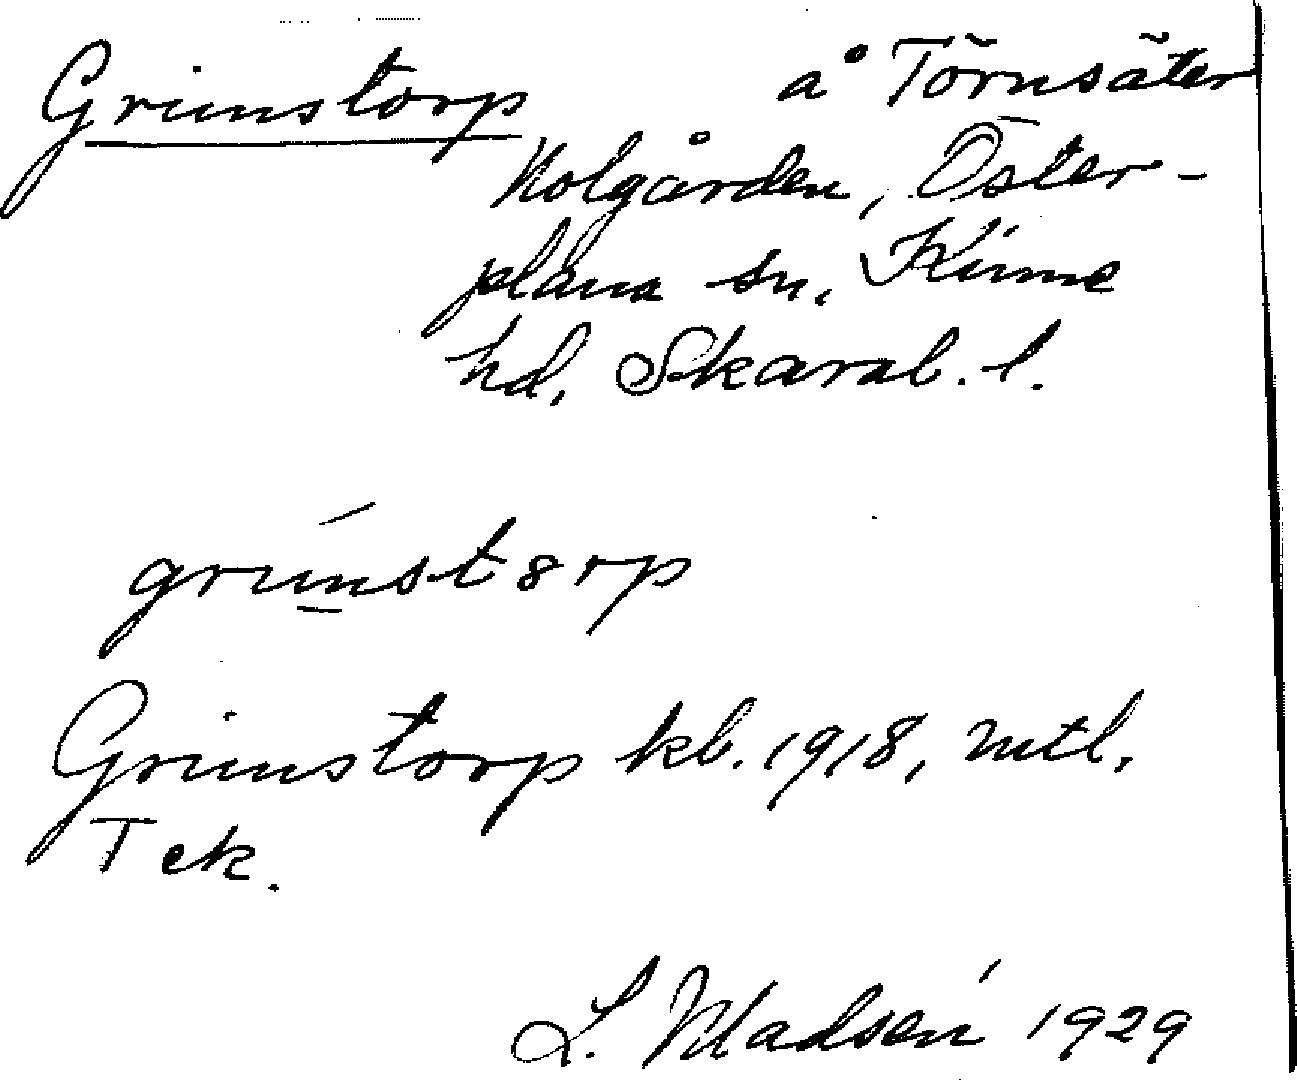 Grimstorp å Törnsäter
Holgården, Öster-
plana sn, Kinne
hd, Skarab. l.
grimstorp
Grimstorp kb. 1918, mtl.
Tek.
L. Madsén 1929